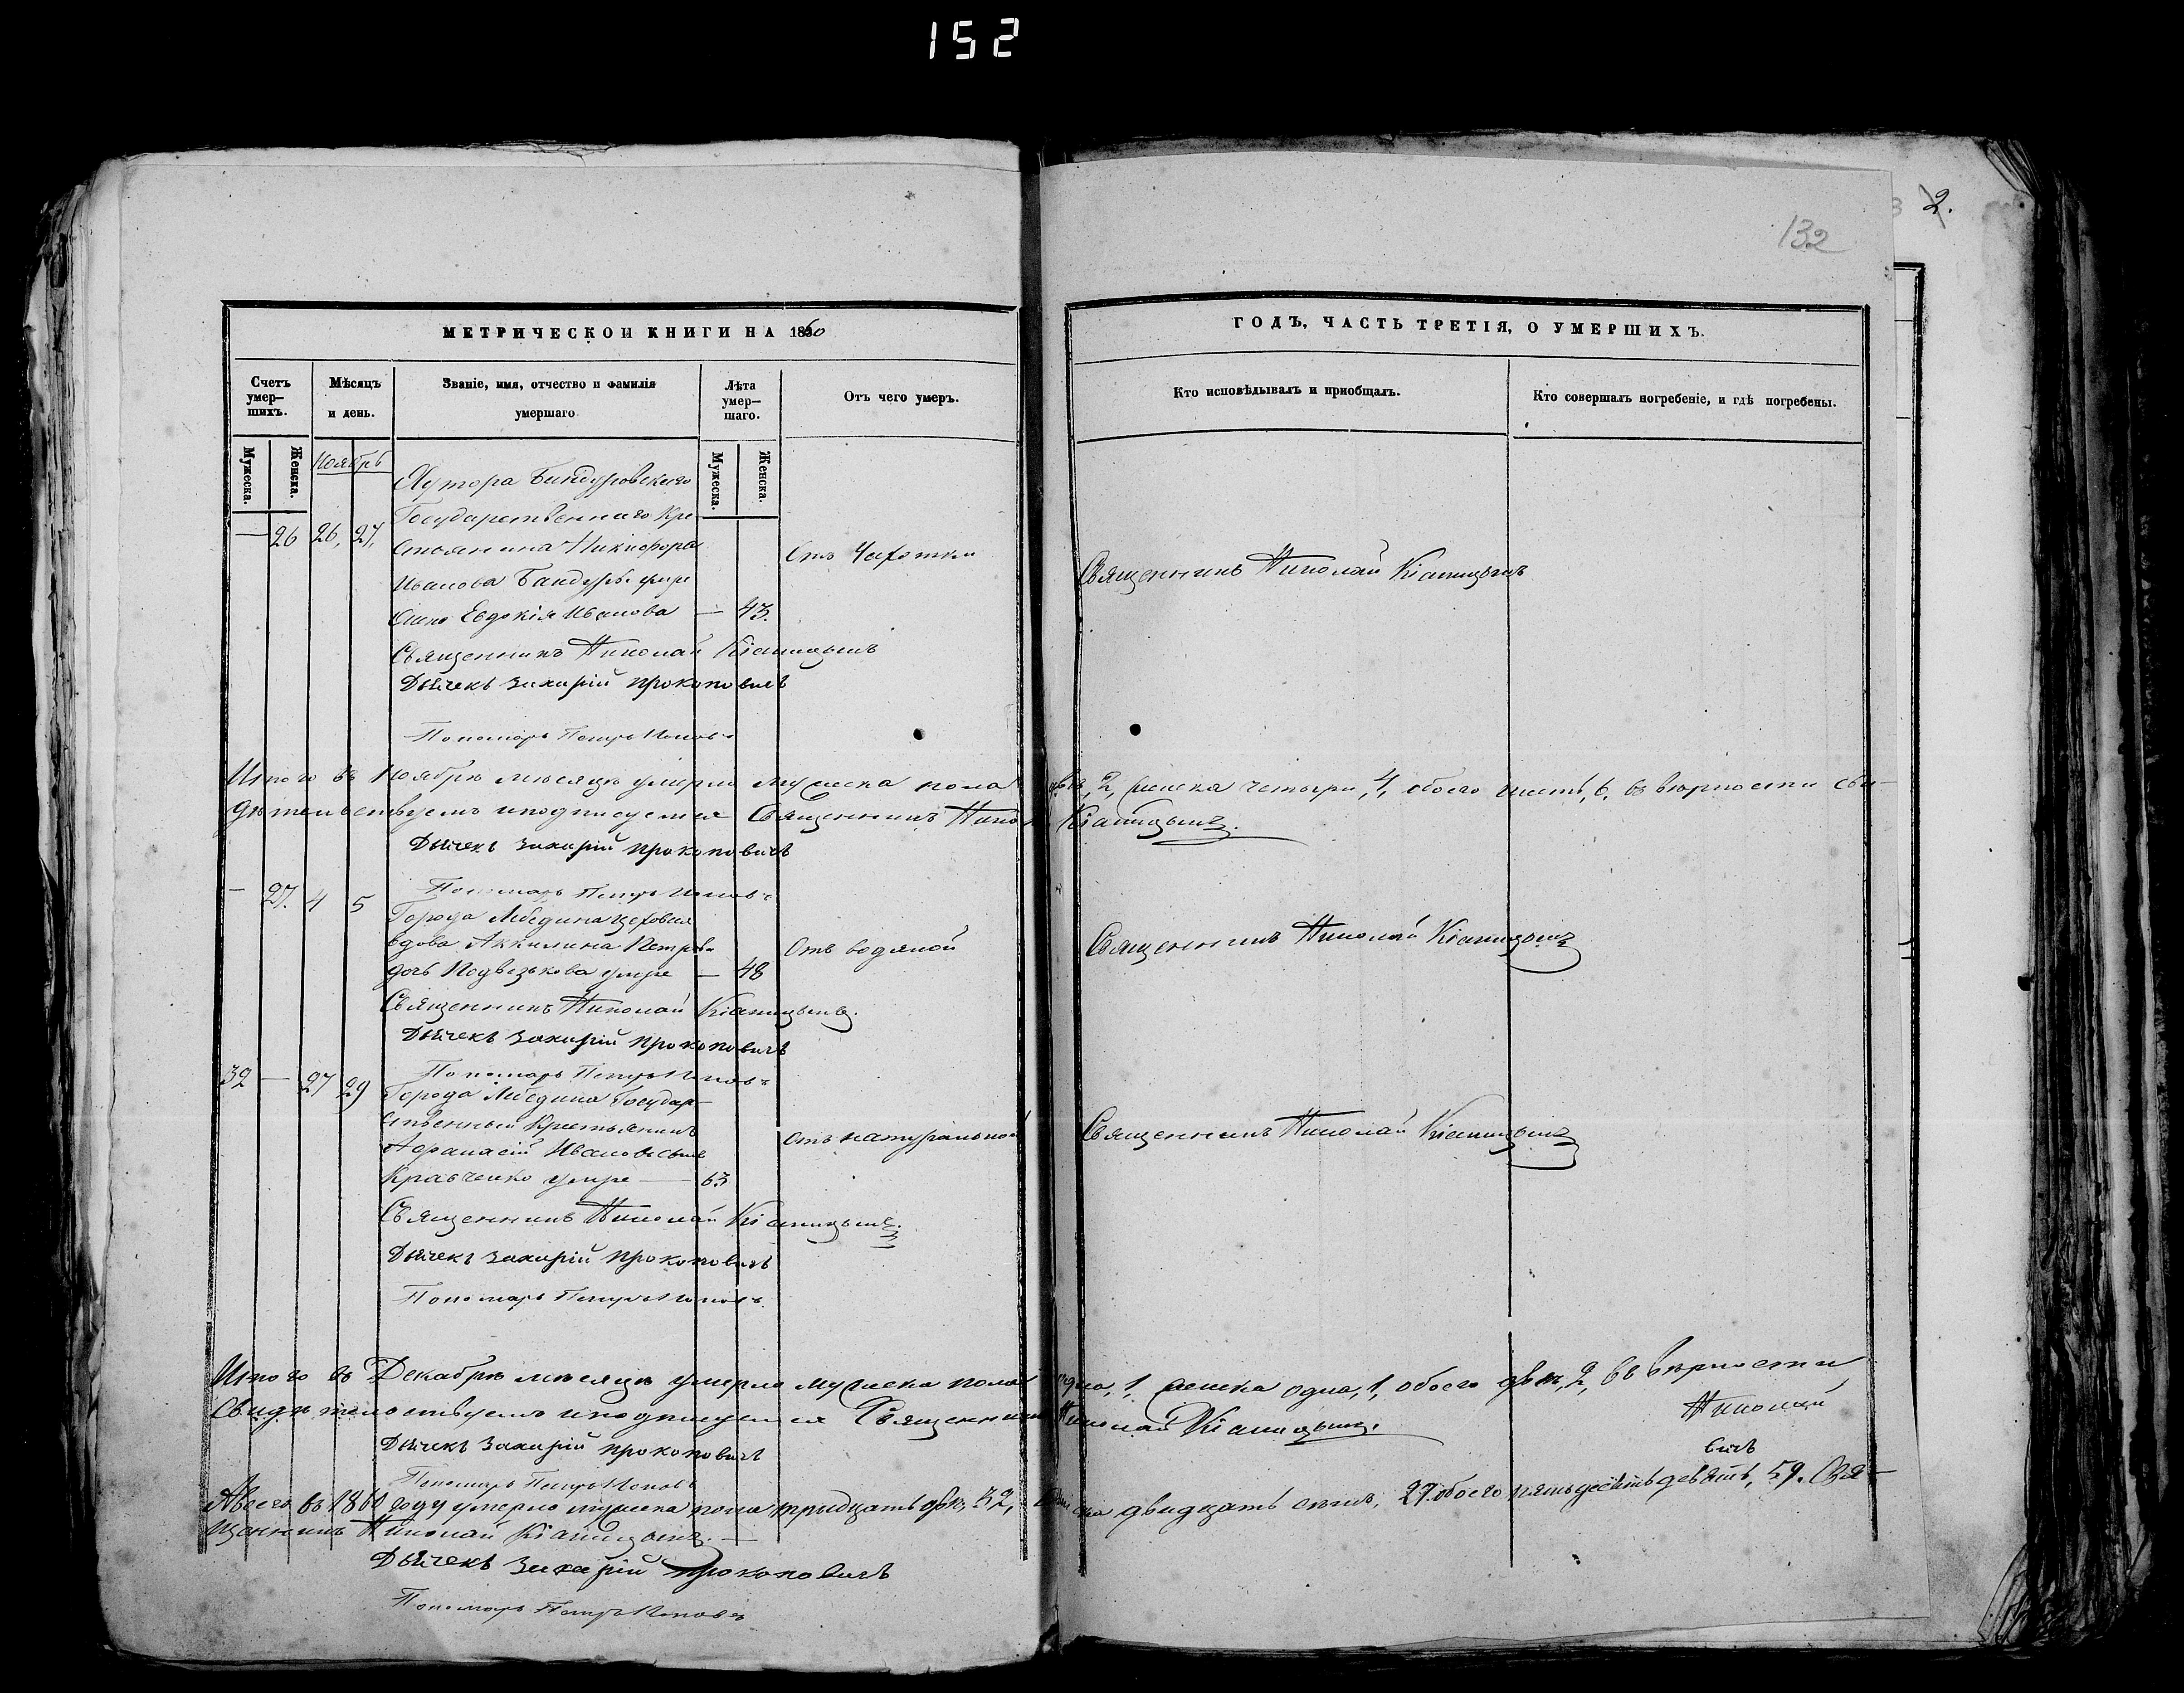 152
132
2.
МЕТРИЧЕСКОИ КНИГИ НА 1860
Счетъ умер-шихъ.
Мѣсяцъ и день.
Званіе, имя, отчество и фамилія умершаго
Лѣта умер-шаго.
Отъ чего умеръ.
Мужеска.
Женска.
Мужеска.
Женска.
Ноябрь
Хутора Бандуровскаго
Государственнаго Кре-
— 26 26, 27, стьянина Никифора
Отъ Чахотки
Иванова Бандуры
Евдокія Иванова — 43.
Священникъ Николай
Дьячекъ Захарій Прокоповичъ
Пономарь Петръ Поповъ
Итого въ Ноябрѣ мѣсяцѣ умерло мужеска пола
дѣтельствуемъ и подписуемся Священникъ
Дьячекъ Захарій Прокоповичъ
Пономарь Петръ Поповъ
— 27. 4 5
Города Лебедина цеховая
вдова Аккилина Петрова
Отъ водяной
дочь умре — 48
Священникъ Николай
Дьячекъ Захарій Прокоповичъ
Пономарь Петръ Поповъ
32 — 27 29
Города Лебедина Государ-
ственный Крестьянинъ
Отъ натуральной
Афанасій Ивановъ сынъ
Кравченко умре — 63
Священникъ Николай
Дьячекъ Захарій Прокоповичъ
Пономарь Петръ Поповъ
Итого въ Декабрѣ мѣсяцѣ умерло мужеска пола
Свидѣтельствуемъ и подписуемся Священникъ
Дьячекъ Захарій Прокоповичъ
Пономарь Петръ Поповъ
А всего въ 1860 году умерло мужеска пола тридцать два, 32,
щенникъ Николай
Дьячекъ Захарій Прокоповичъ
Пономарь Петръ Поповъ
ГОДЪ, ЧАСТЬ ТРЕТІЯ, О УМЕРШИХЪ.
Кто исповѣдывалъ и приобщалъ.
Кто совершалъ погребеніе, и гдѣ погребены.
Священникъ Николай
два, 2, женска четыри, 4, обоего шесть, 6. въ вѣрности сви-
Священникъ Николай
Священникъ Николай
одна, 1, женска одна, 1, обоего два, 2, въ вѣрности
Николай
Николай
вичъ
двадцать семь, 27. обоего пятьдесятъ девять, 59. Свя-